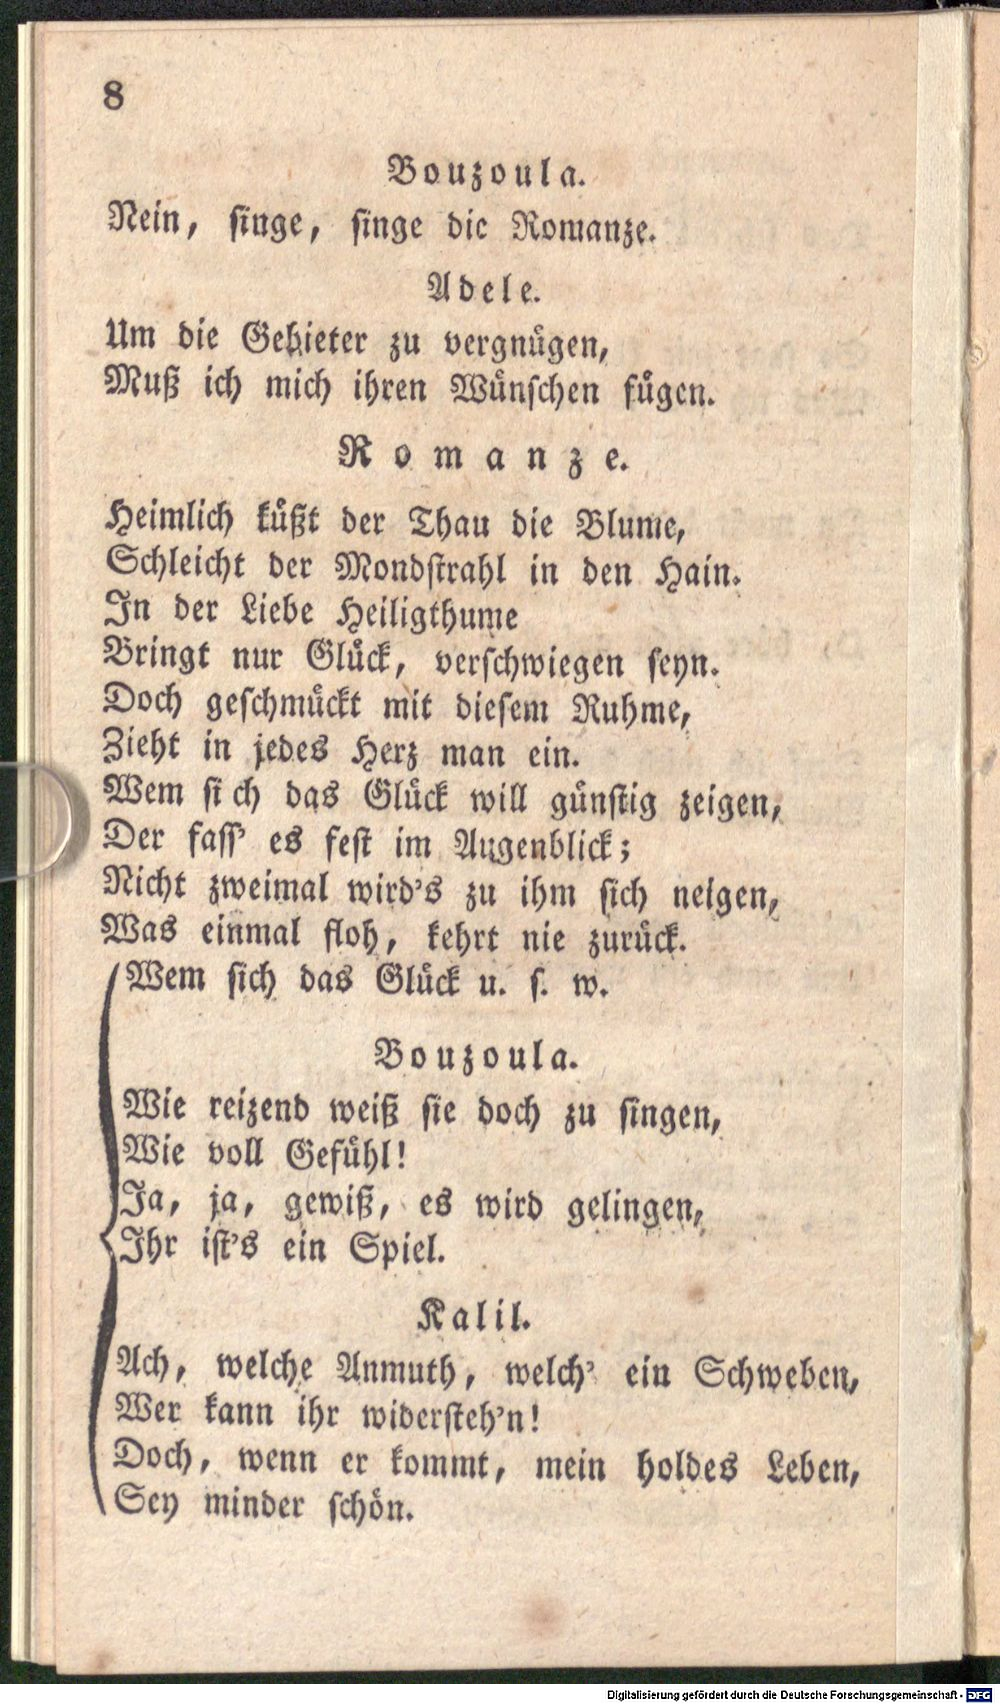 8
Bouzoula.
Nein, singe, singe die Romanze.
Adele.
Um die Gebieter zu vergnügen,
Muß ich mich ihren Wünschen fügen.
Romanze.
Heimlich küßt der Thau die Blume,
Schleicht der Mondstrahl in den Hain.
In der Liebe Heiligthume
Bringt nur Glück, verschwiegen seyn.
Doch geschmückt mit diesem Ruhme,
Zieht in jedes Herz man ein.
Wem sich das Glück will günstig zeigen,
Der fass' es fest im Augenblick;
Nicht zweimal wird's zu ihm sich neigen,
Was einmal floh, kehrt nie zurück.
Wem sich das Glück u. s. w.
Bouzoula.
Wie reizend weiß sie doch zu singen,
Wie voll Gefühl!
Ja, ja, gewiß, es wird gelingen,
Ihr ist's ein Spiel.
Kalil.
Ach, welche Anmuth, welch' ein Schweben,
Wer kann ihr widersteh'n!
Doch, wenn er kommt, mein holdes Leben,
Sey minder schön.
Digitalisierung gefördert durch die Deutsche Forschungsgemeinschaft - DFG